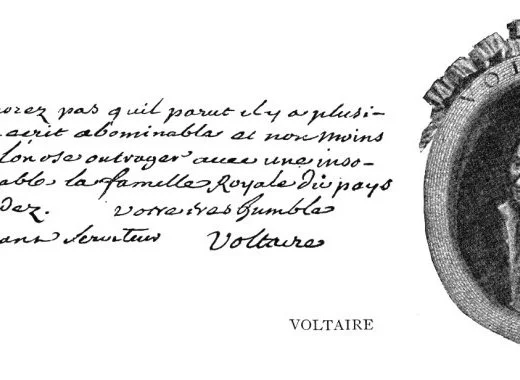 orez pas qu'il parut il y a plusi-
ecrit abominable et non moins
l'on ose outrager avec une inso-
able la famille Royale du pays
dez. votre tres humble
ant serviteur Voltaire
VOLTAIRE
VOL